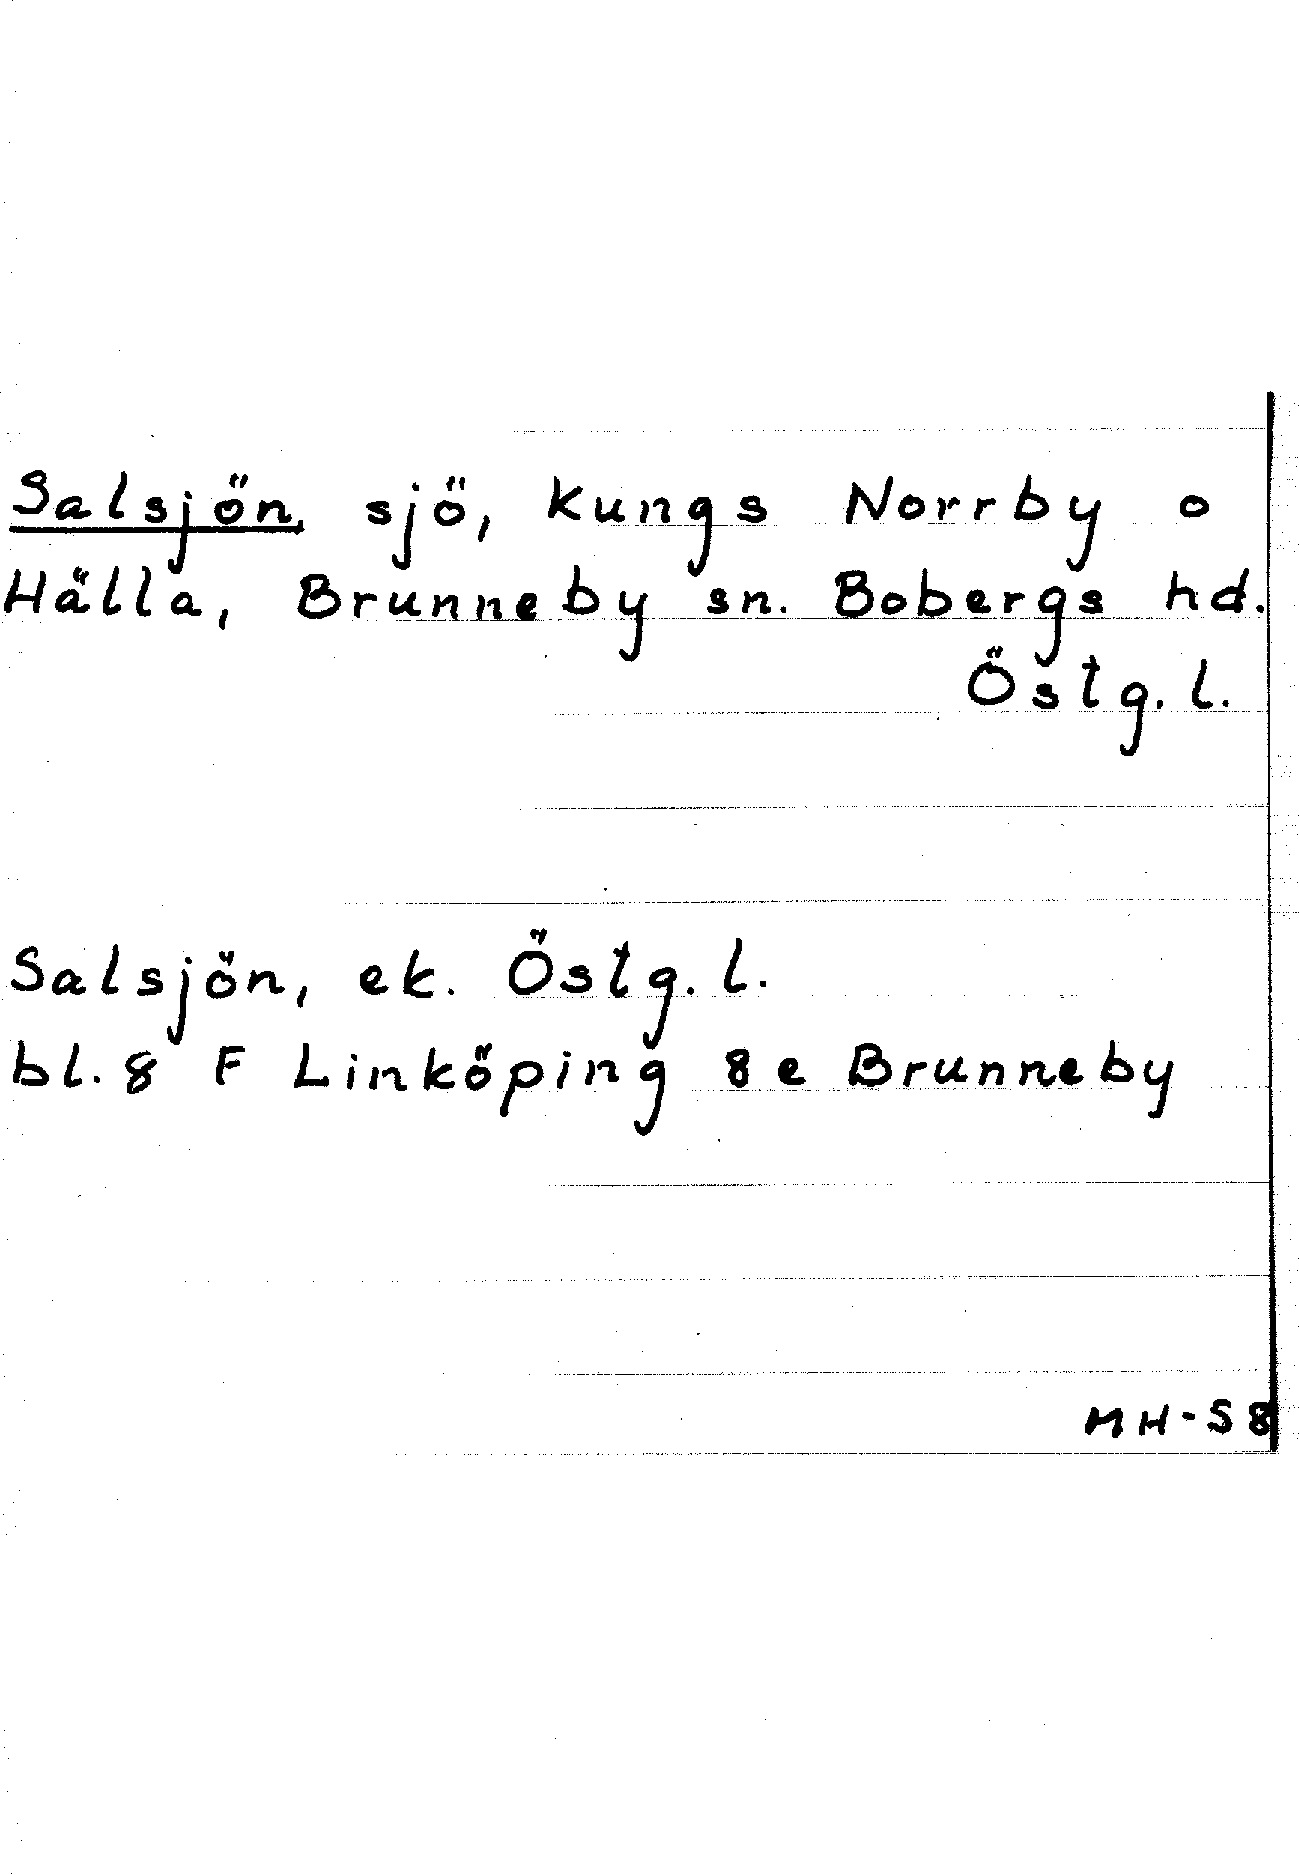 Salsjön, sjö, Kungs Norrby o
Hälla, Brunneby sn. Bobergs hd.
Östg. l.
Salsjön, ek. Östg. l.
bl. 8 F Linköping 8e Brunneby
MH-S8